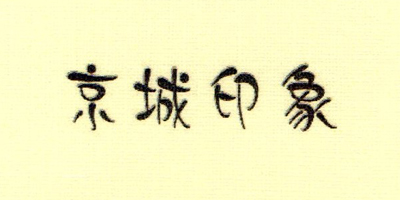 京城印象